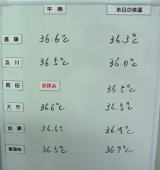 平熱 本日の体温
遠藤 36.6℃ 36.3℃
及川 36.5℃ 36.0℃
岡田 お休み 36.5℃
大竹 36.6℃ 36.5℃
加瀬 36.6℃ 36.4℃
36.5℃ 36.7℃